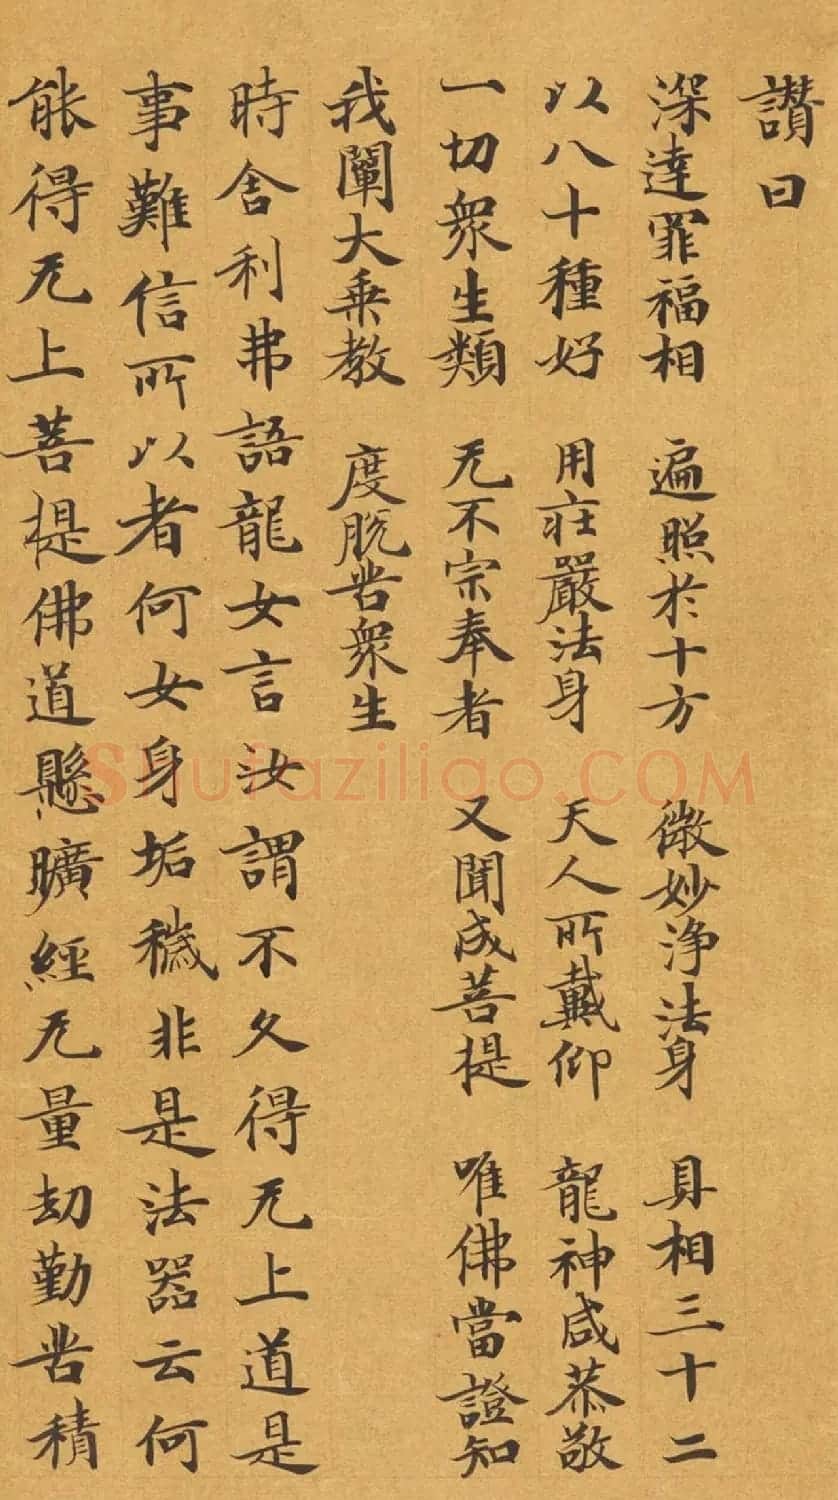 讃曰
深達罪福相 遍照於十方 微妙淨法身 具相三十二
以八十種好 用莊嚴法身 天人所戴仰 龍神咸恭敬
一切衆生類 无不宗奉者 又聞成菩提 唯佛當證知
我闡大乗教 度脱苦衆生
時舍利弗語龍女言汝謂不久得无上道是
事難信所以者何女身垢穢非是法器云何
能得无上菩提佛道懸曠經无量劫勤苦積
Shufaziliao.COM